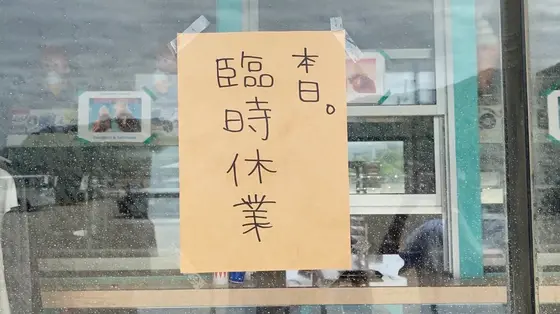 本日。
臨時休業